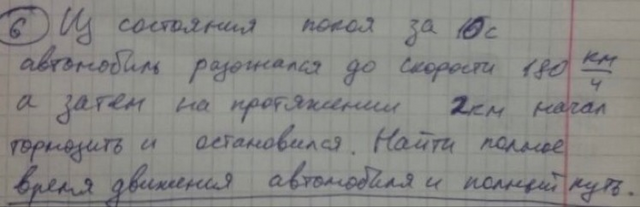 6 Из состояния покоя за 10с
автомобиль разогнался до скорости 180 км/ч
а затем на протяжении 2км начал
тормозить и остановился. Найти полное
время движения автомобиля и полный путь.